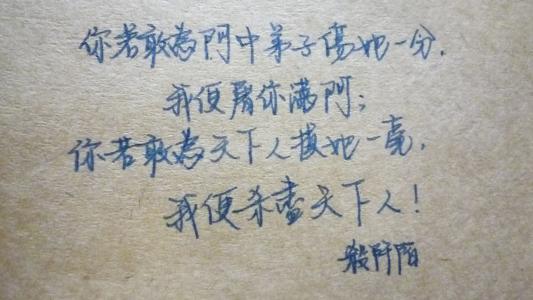 你若敢為門中弟子傷她一分，
我便屠你滿門；
你若敢為天下人損她一毫，
我便杀盡天下人！
殺阡陌